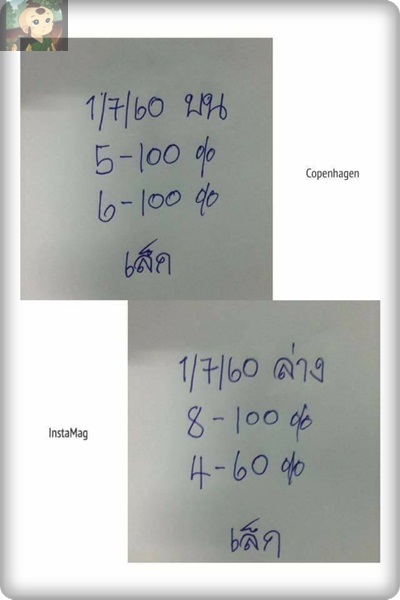 1/7/60 บน
5-100 %
6-100 %
เส็ค
Copenhagen
1/7/60 ล่าง
8-100 %
4-60 %
เส็ค
InstaMag